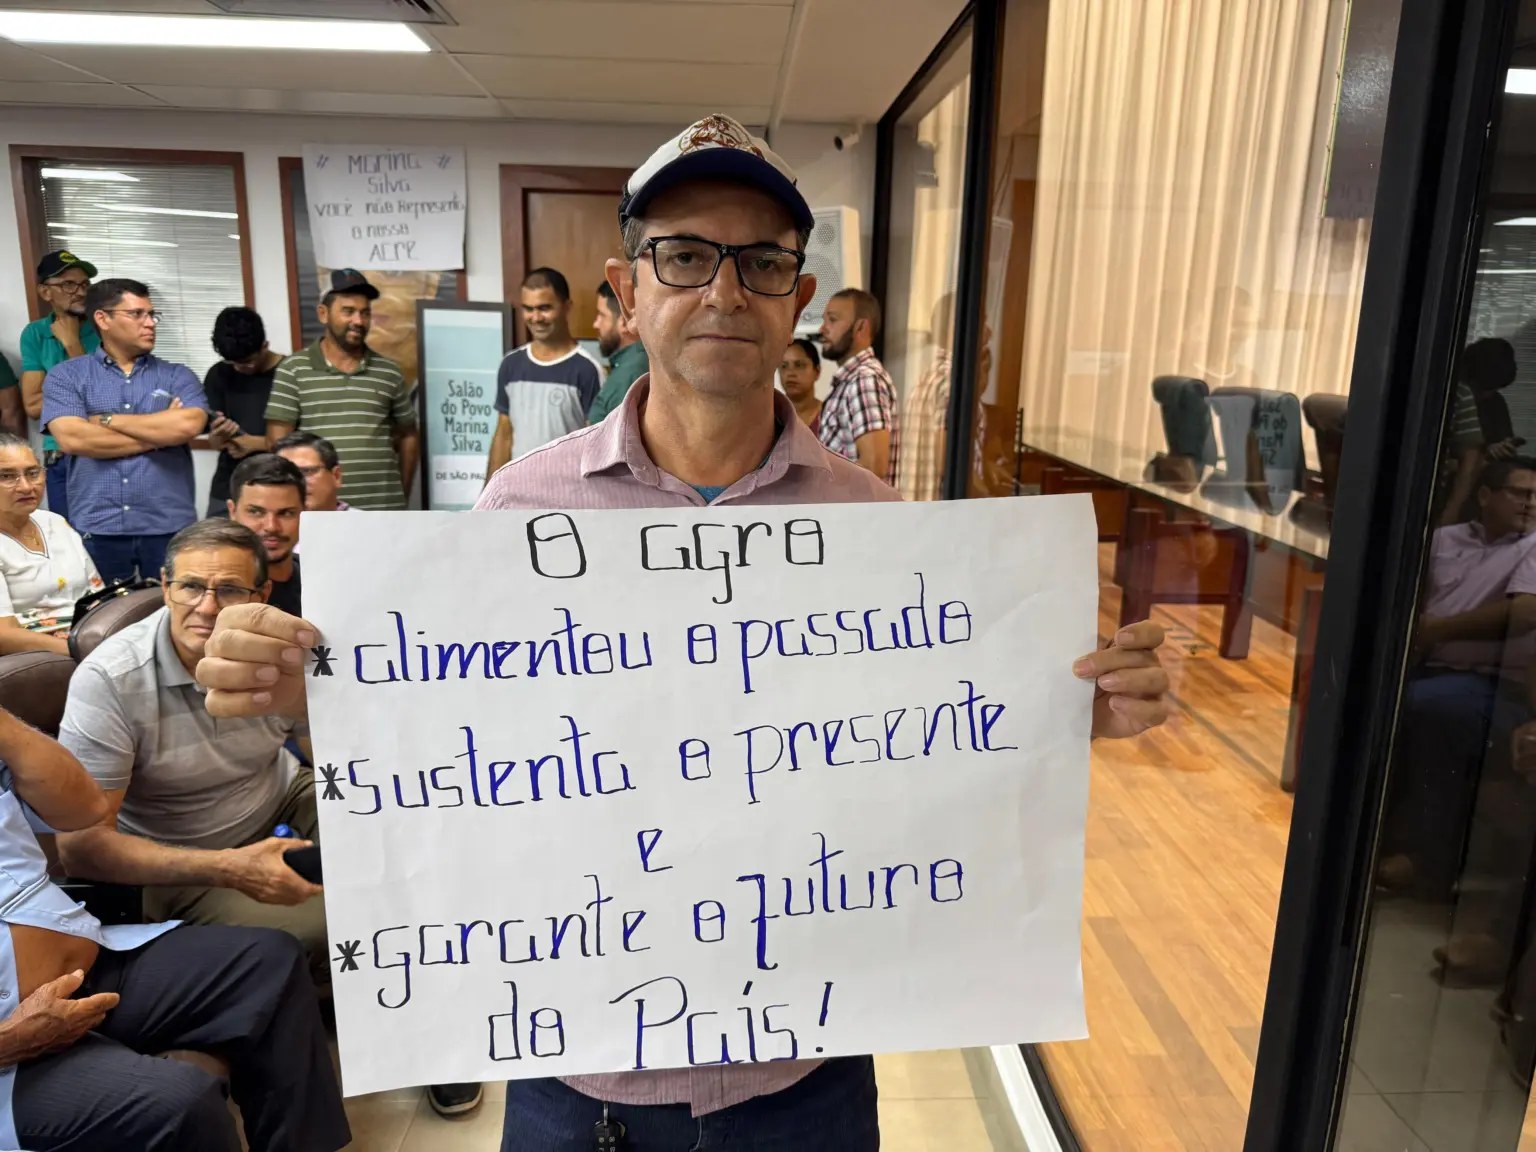 # Marina #
Silva
você não Representa
o nosso
ACRE
Salão
do Povo
Marina
Silva
DE SÃO PAU
O agro
* alimentou o passado
* sustenta o presente
e
* garante o futuro
do País!